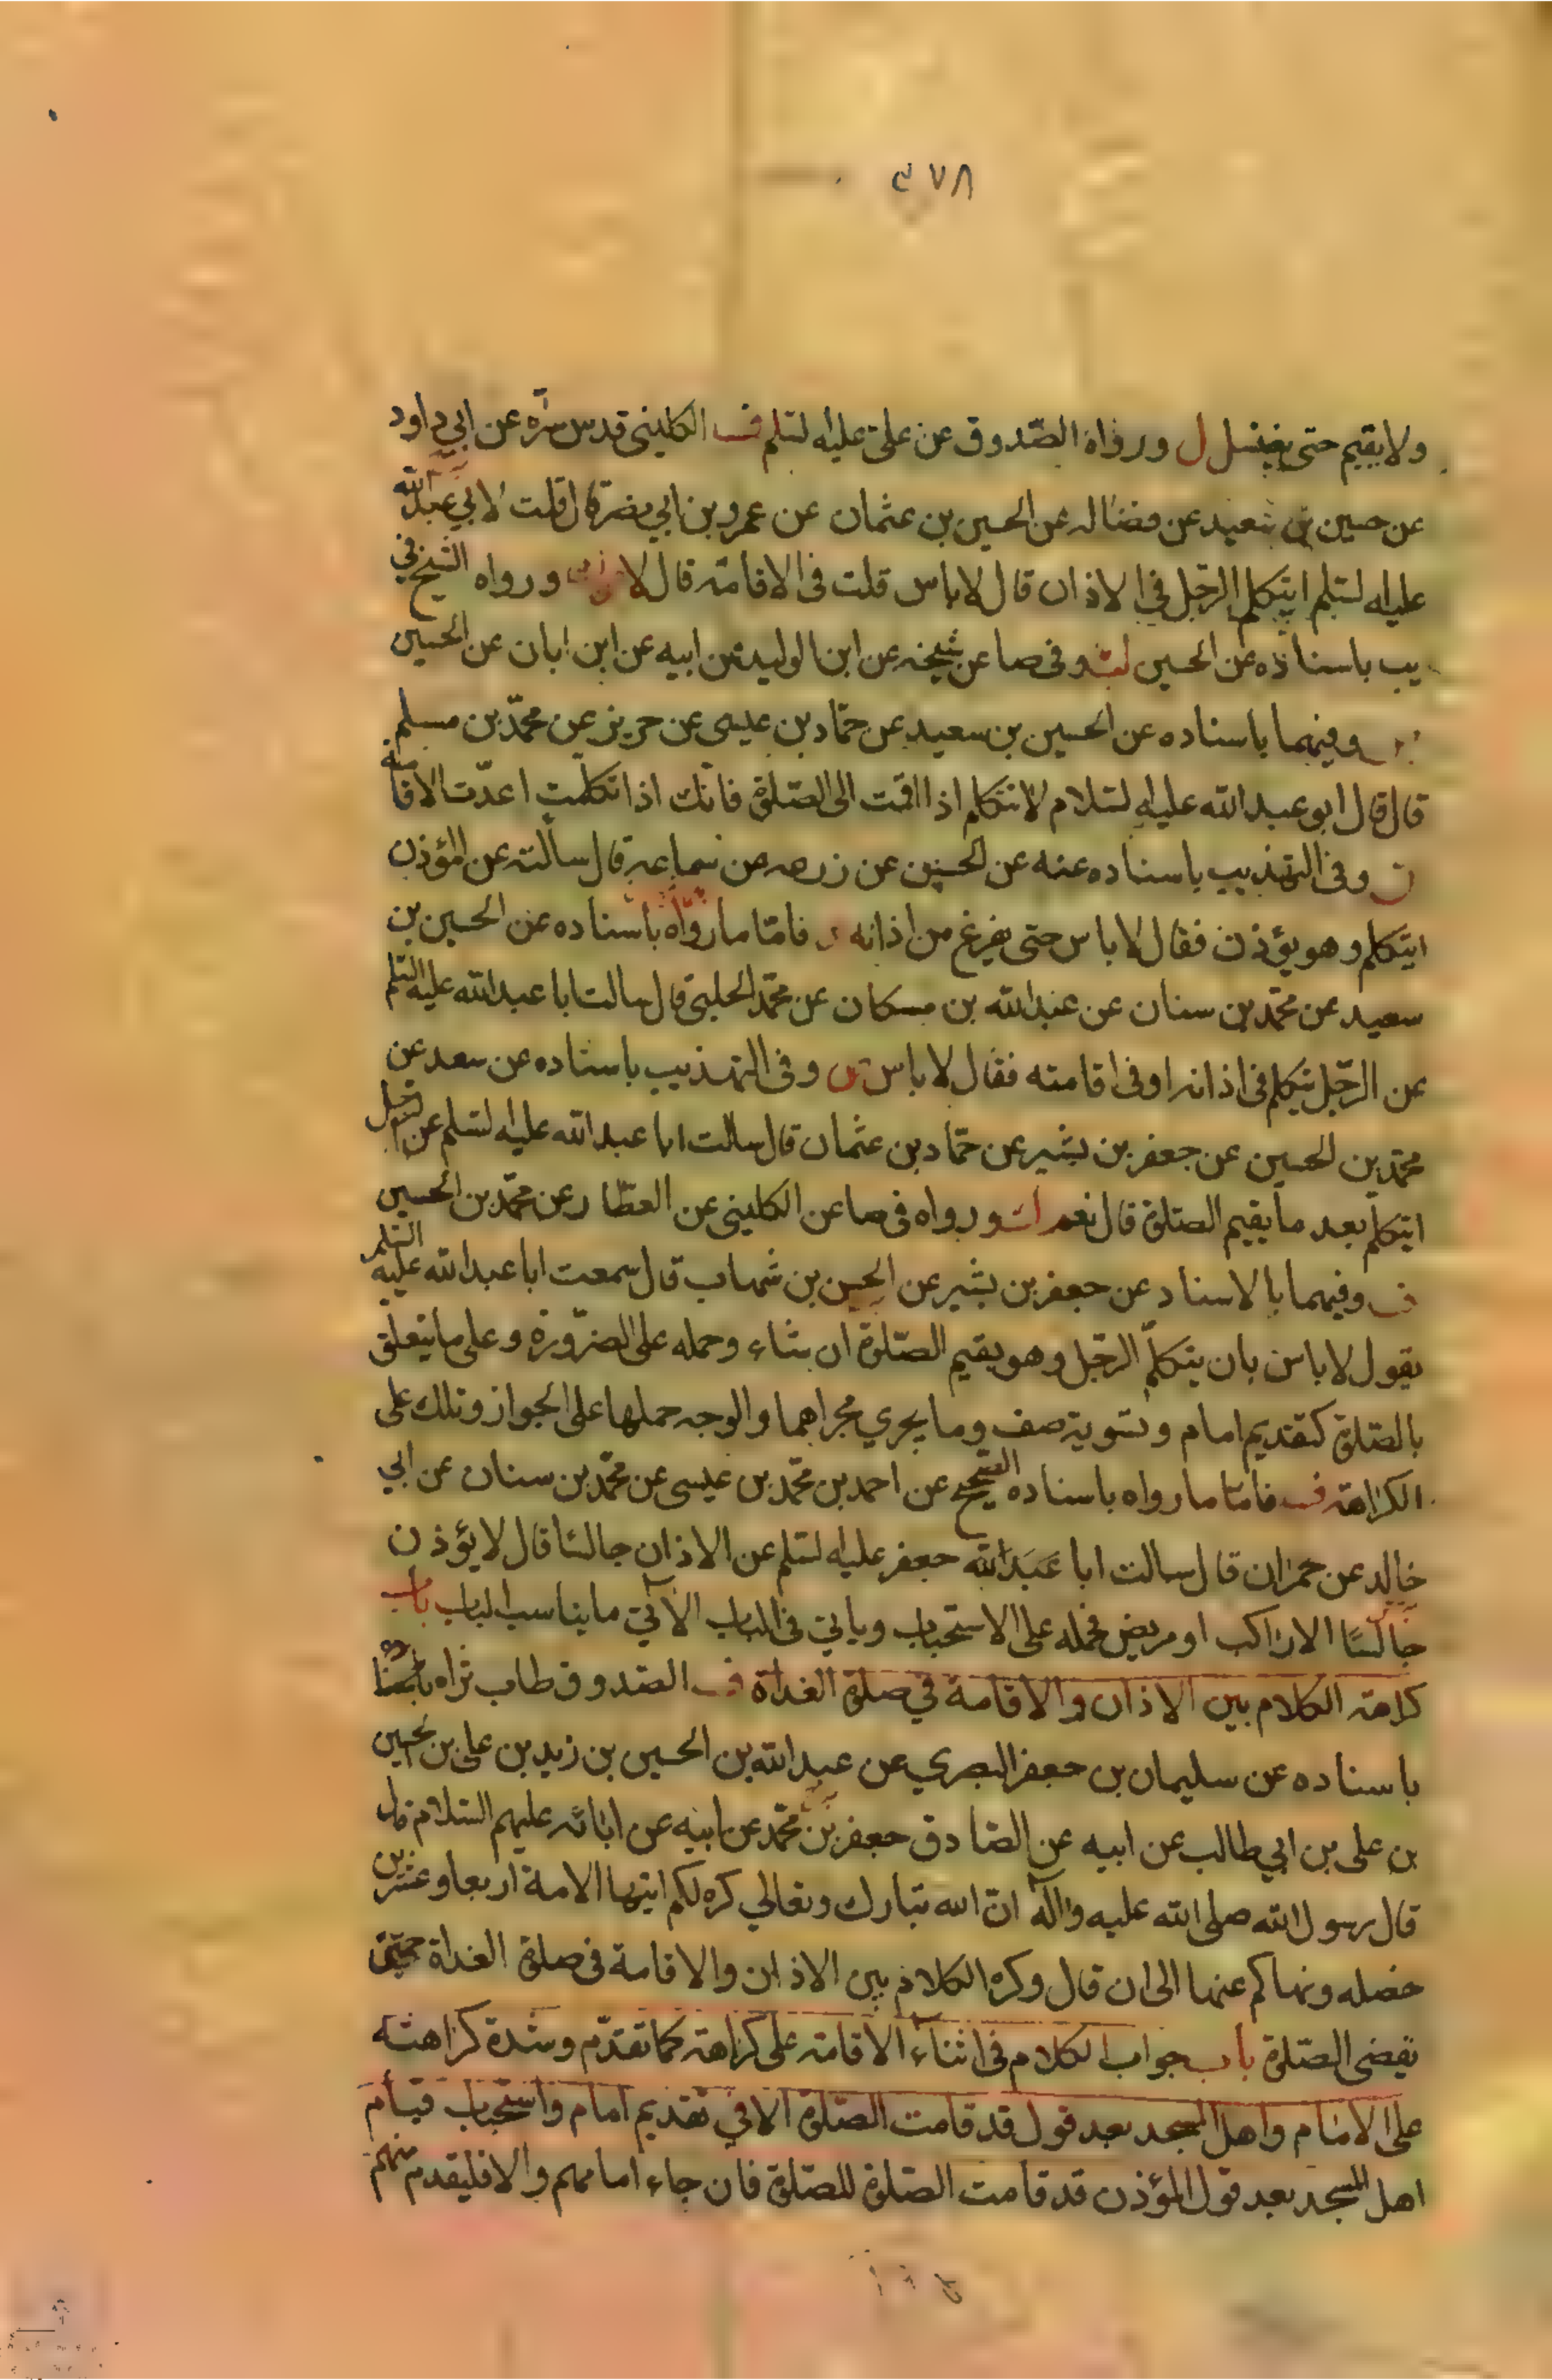 ٣٧٨
ولا يقيم حتى يغتسل ل ورواه الصّدوق عن علىّ عليه لسّلم ف الكلينى قدس سرّه عن ابي داود
عن حسين بن سعيد عن فضاله عن الحسين بن عثمان عن عمرو بن ابي نصر قال قلت لابي عبد الله
عليه لسّلم ايتكلم الرّجل في الاذان قال لا باس قلت فى الاقامة قال لا ورواه الشيخ في
يب باسناده عن الحسين وفى صا عن شيخه عن ابن الوليد عن ابيه عن ابن ابان عن الحسين
وفيهما باسناده عن الحسين بن سعيد عن حمّاد بن عيسى عن حريز عن محمّد بن مسلم
قال قال ابو عبد الله عليه لسّلام لا تتكلم اذا اقمت الى الصّلوة فانّك اذا تكلّمت اعدّت الاقامة
ن وفى التهذيب باسناده عنه عن الحسين عن زرعه عن سماعه قال سالته عن المؤذن
ايتكلم وهو يؤذن فقال لا باس حتى يفرغ من اذانه فامّا ما رواه باسناده عن الحسين بن
سعيد عن محمّد بن سنان عن عبد الله بن مسكان عن محمّد الحلبى قال سالت ابا عبد الله عليه السّلم
عن الرّجل يتكلم فى اذانه او فى اقامته فقال لا باس وفى التهذيب باسناده عن سعد عن
محمّد بن الحسين عن جعفر بن بشير عن حمّاد بن عثمان قال سالت ابا عبد الله عليه لسّلم عن الرّجل
ايتكلم بعد ما يقيم الصّلوة قال نعم ورواه فى صا عن الكلينى عن العطّار عن محمّد بن الحسين
ف وفيهما بالاسناد عن جعفر بن بشير عن الحسن بن شهاب قال سمعت ابا عبد الله عليه السّلم
يقول لا باس بان يتكلّم الرّجل وهو يقيم الصّلوة ان شاء وحمله على الضّرورة وعلى ما يتعلّق
بالصّلوة كتقديم امام وتسوية صف وما يجري مجراهما والوجه حملها على الجواز وتلك على
الكراهة ف فامّا ما رواه باسناده الصّحيح عن احمد بن محمّد بن عيسى عن محمّد بن سنان عن ابي
خالد عن حمران قال سالت ابا عبد الله جعفر عليه لسّلم عن الاذان جالسًا قال لا يؤذن
جالسًا الا راكب او مريض فحمله على الاستحباب وياتي فى الباب الآتي ما يناسب الباب باب
كراهة الكلام بين الاذان والاقامة في صلوة الغداة ف الصّدوق طاب ثراه
باسناده عن سليمان بن جعفر البصري عن عبد الله بن الحسين بن زيد بن على بن الحسين
بن على بن ابي طالب عن ابيه عن الصّادق جعفر بن محمّد عن ابيه عن ابائه عليهم السّلام قال
قال رسول الله صلى الله عليه وآله انّ الله تبارك وتعالي كره لكم ايّتها الامة اربعا وعشرين
خصله ونهاكم عنها الى ان قال وكره الكلام بين الاذان والاقامة فى صلوة الغداة حتى
تقضى الصّلوة باب جواب الكلام فى اثناء الاقامة على كراهة كما تقدّم وشدة كراهته
على الامام واهل المسجد بعد قول قد قامت الصّلوة الا في تقديم امام واستحباب قيام
اهل المسجد بعد قول المؤذن قد قامت الصّلوة للصّلوة فان جاء امامهم والا فليقدم منهم